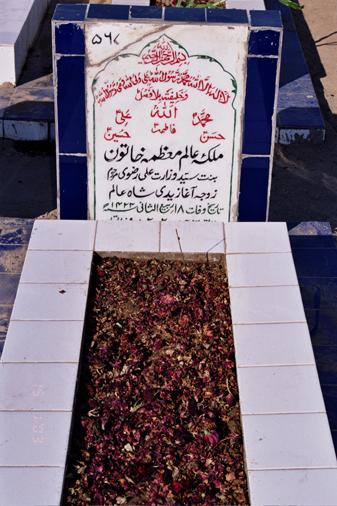 ۵۶۷
بسم اللہ الرحمن الرحیم
لا الہ الا اللہ محمد رسول اللہ علی ولی اللہ
وخلیفتہ بلا فصل
اللہ
محمدؐ علیؑ
فاطمہؑ
حسنؑ حسینؑ
ملک عالم معظمہ خاتون
بنت سید وزارت علی رضوی مرحوم
زوجہ آغا زیدی شاہ عالم
تاریخ وفات ۱۸ ربیع الثانی ۱۴۲۳